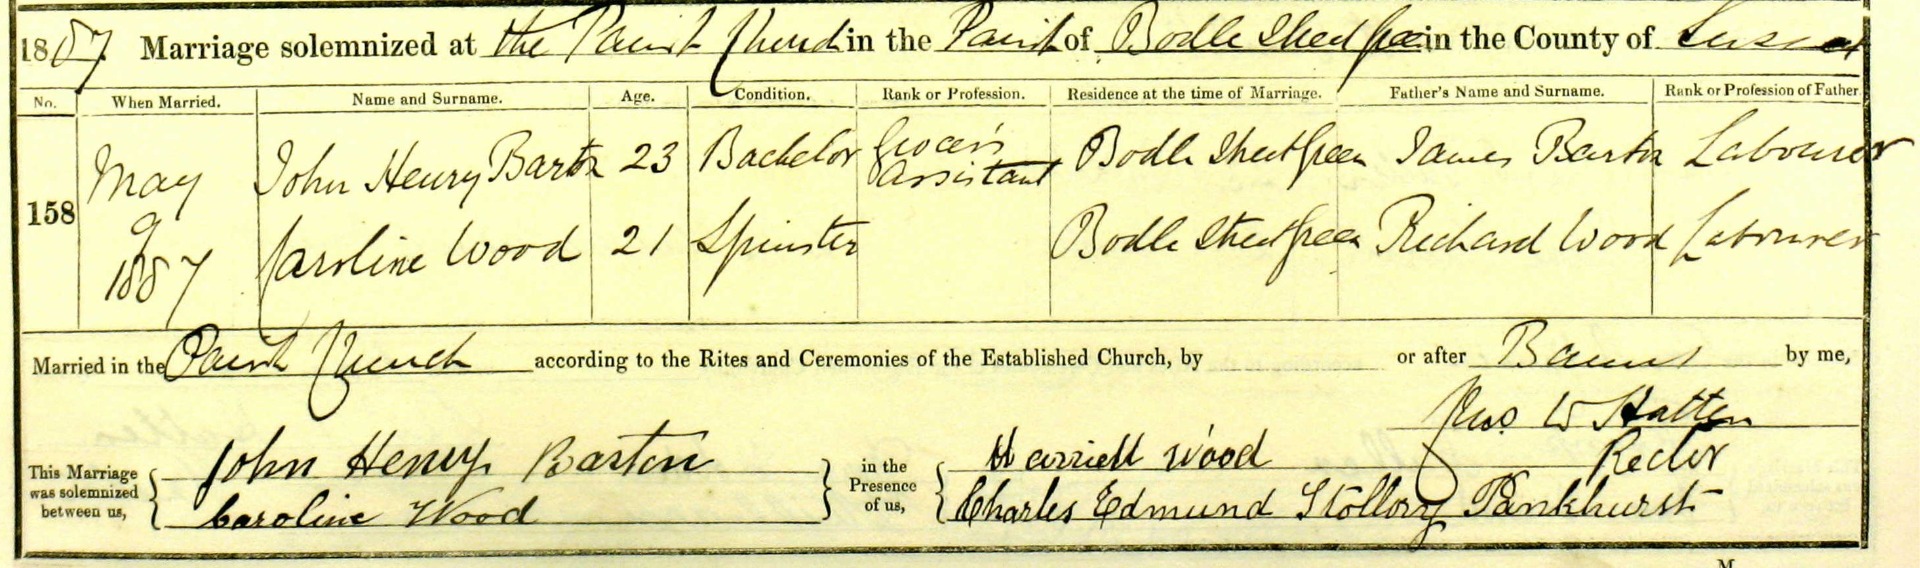 1887 Marriage solemnized at the Parish Church in the Parish of Bodle Street Green in the County of Sussex
No. When Married. Name and Surname. Age. Condition. Rank or Profession. Residence at the time of Marriage. Father's Name and Surname. Rank or Profession of Father.
158 May 9 1887 John Henry Barton 23 Bachelor Grocer's Assistant Bodle Street Green James Barton Labourer
Caroline Wood 21 Spinster Bodle Street Green Richard Wood Labourer
Married in the Parish Church according to the Rites and Ceremonies of the Established Church, by or after Banns by me,
W Hatten
Rector
This Marriage was solemnized between us, John Henry Barton in the Presence of us, Harriett Wood
Caroline Wood Charles Edmund Stollory Pankhurst
M